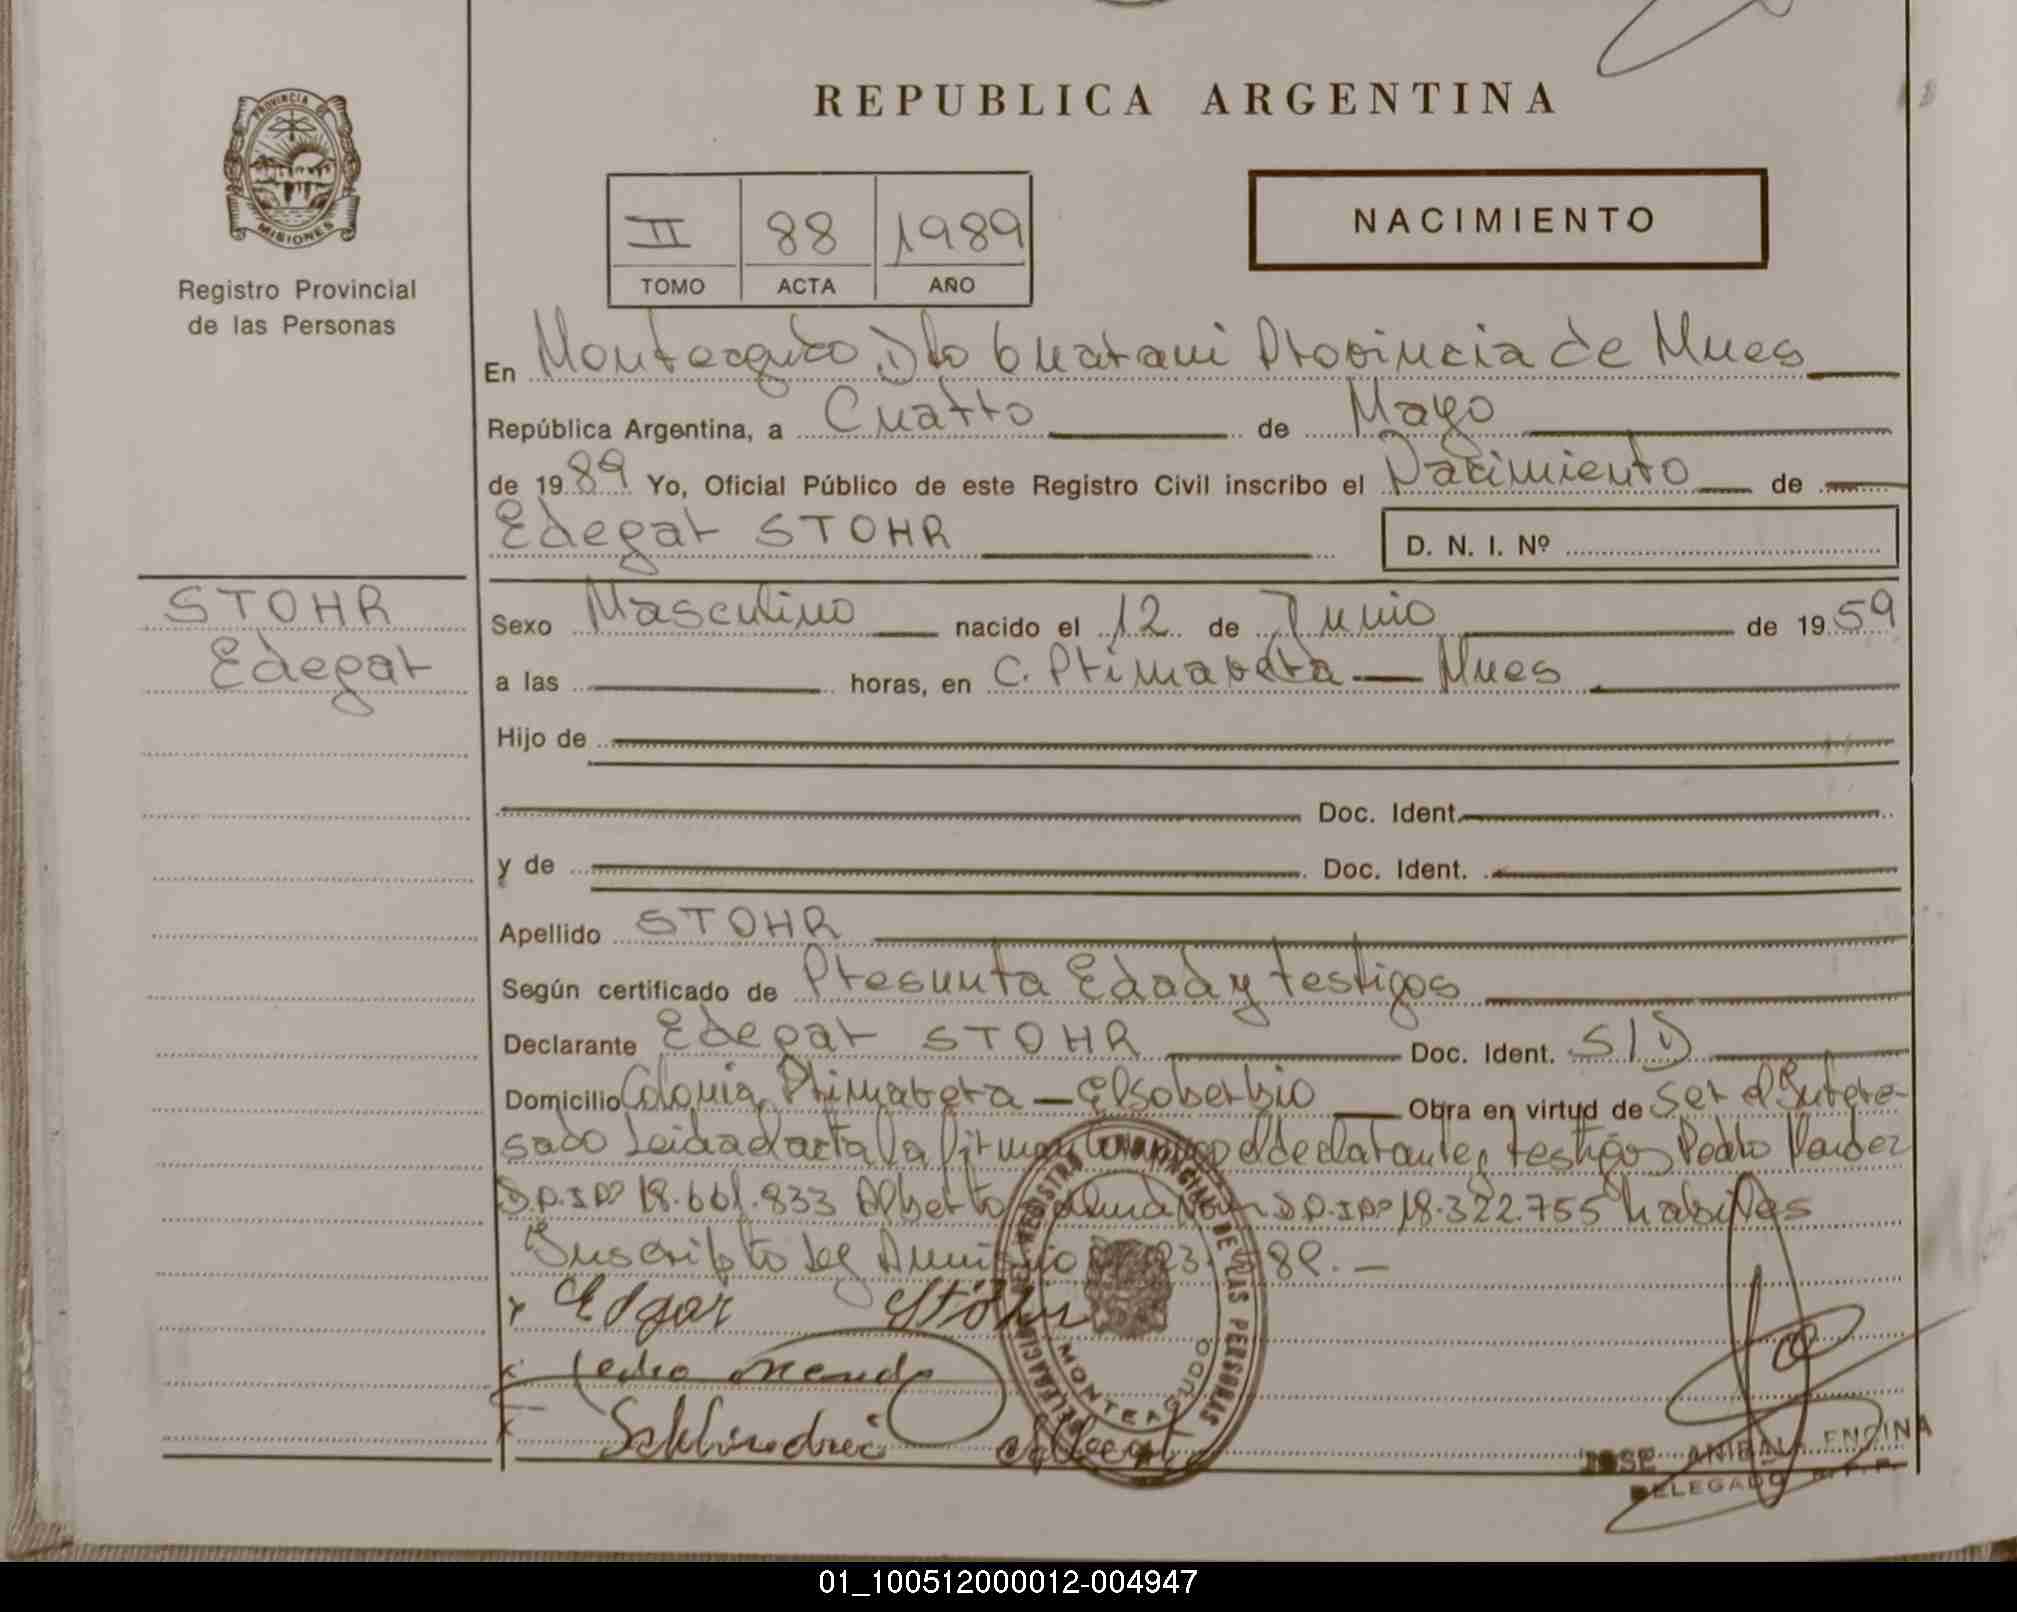 REPUBLICA ARGENTINA
PROVINCIA DE
MISIONES
Registro Provincial
de las Personas
II 88 1989
TOMO ACTA AÑO
NACIMIENTO
En Monteagudo Dto Guarani Provincia de Mnes
República Argentina, a Cuatro de Mayo
de 1989 Yo, Oficial Público de este Registro Civil inscribo el Nacimiento de
Edegar STOHR
D. N. I. Nº
STOHR
Edegar
Sexo Masculino nacido el 12 de Junio de 1959
a las horas, en C. Primavera — Mnes
Hijo de
Doc. Ident.
y de Doc. Ident.
Apellido STOHR
Según certificado de Presunta Edad y testigos
Declarante Edegar STOHR Doc. Ident. S/D
Domicilio Colonia Primavera — El Soberbio Obra en virtud de Ser el Intere-
sado Leida el acta la firman el declarante, testigos Pedro
D.N.I Nº 18.661.833 Alberto D.N.I Nº 18.322.755 habiles
Inscripto
Edgar Stöhr
Pedro
DELEGACION REGISTRO PROVINCIAL DE LAS PERSONAS
MONTEAGUDO
JOSE ANIBAL ENCINA
DELEGADO R.P.P.
01_100512000012-004947